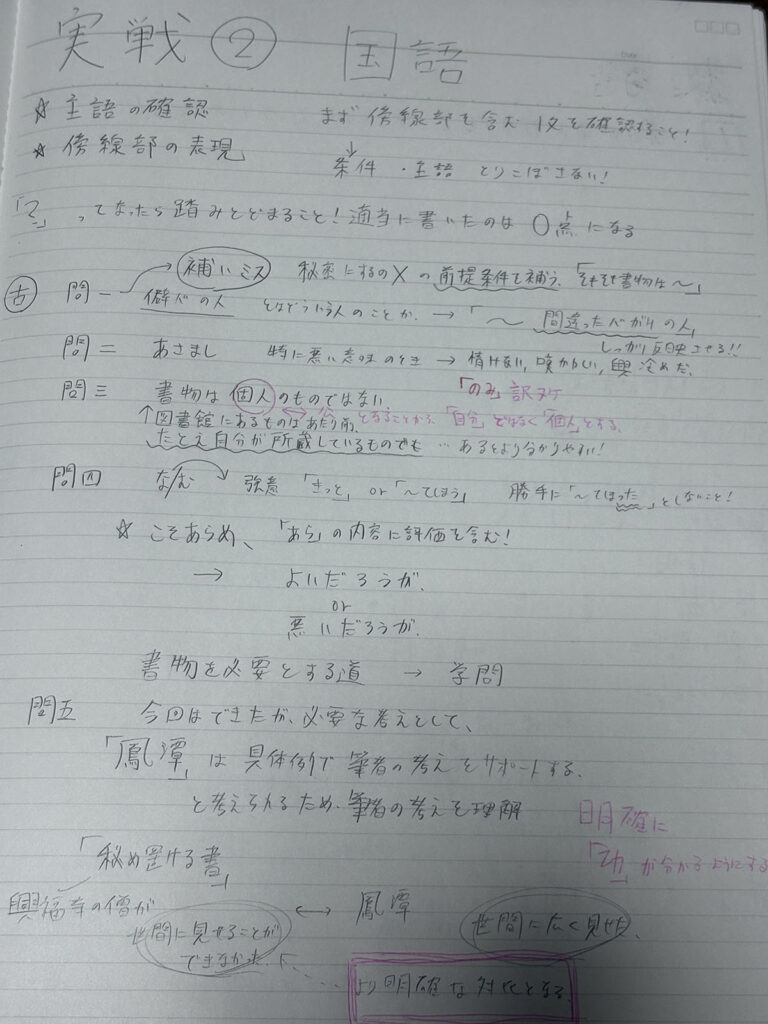 実戦② 国語
☆ 主語の確認 まず傍線部を含む1文を確認すること!
☆ 傍線部の表現 条件・主語 とりこぼさない!
「?」ってなったら踏みとどまること!適当に書いたのは0点になる
古 問一 補いミス 秘密にするの×の前提条件を補う、「そもそも書物は〜」
僻心の人 とはどういう人のことか、→「〜間違った心がけの人」
しっかり反映させる!!
問二 あさまし 特に悪い意味のとき → 情けない, 嘆かわしい, 興冷めだ、
問三 書物は個人のものではない 「のみ」訳ヌケ
↑図書館にあるものはあたり前、 公 とすることから、「自分」ではなく「個人」とする、
たとえ自分が所蔵しているものでも … あるとより分かりやすい!
問四 な/む 強意 「きっと」 or 「〜てしまう」 勝手に「〜てしまった」としないこと!
☆ こそあらめ、「あら」の内容に評価を含む!
→ よいだろうが、
or
悪いだろうが、
書物を必要とする道 → 学問
問五 今回はできたが、必要な考えとして、
「鳳潭」は具体例で筆者の考えをサポートする、
と考えられるため、筆者の考えを理解
明確に
「功」が分かるようにする
「秘め置ける書」
興福寺の僧が
世間に見せることが
できなか
↔ 鳳潭 世間に広く見せた、
より明確な対比となる、